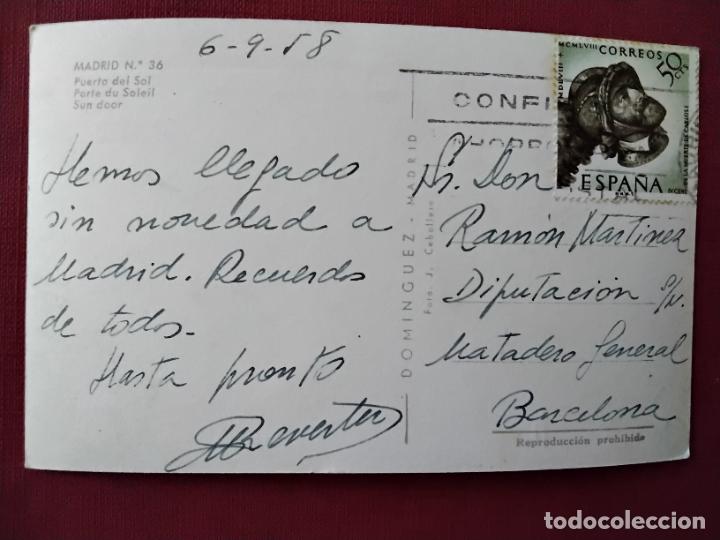 6-9-58
MADRID N.º 36
Puerta del Sol
Porte du Soleil
Sun door
Hemos llegado
sin novedad a
Madrid. Recuerdos
de todos.
Hasta pronto
Reverter
DOMINGUEZ - MADRID
Foto. J. Cebollero
CONFI
MCMLVIII CORREOS
50 CTS
ESPAÑA
Sr. Don
Ramón Martinez
Diputación s/n.
Matadero General
Barcelona
Reproducción prohibida
todocoleccion.net